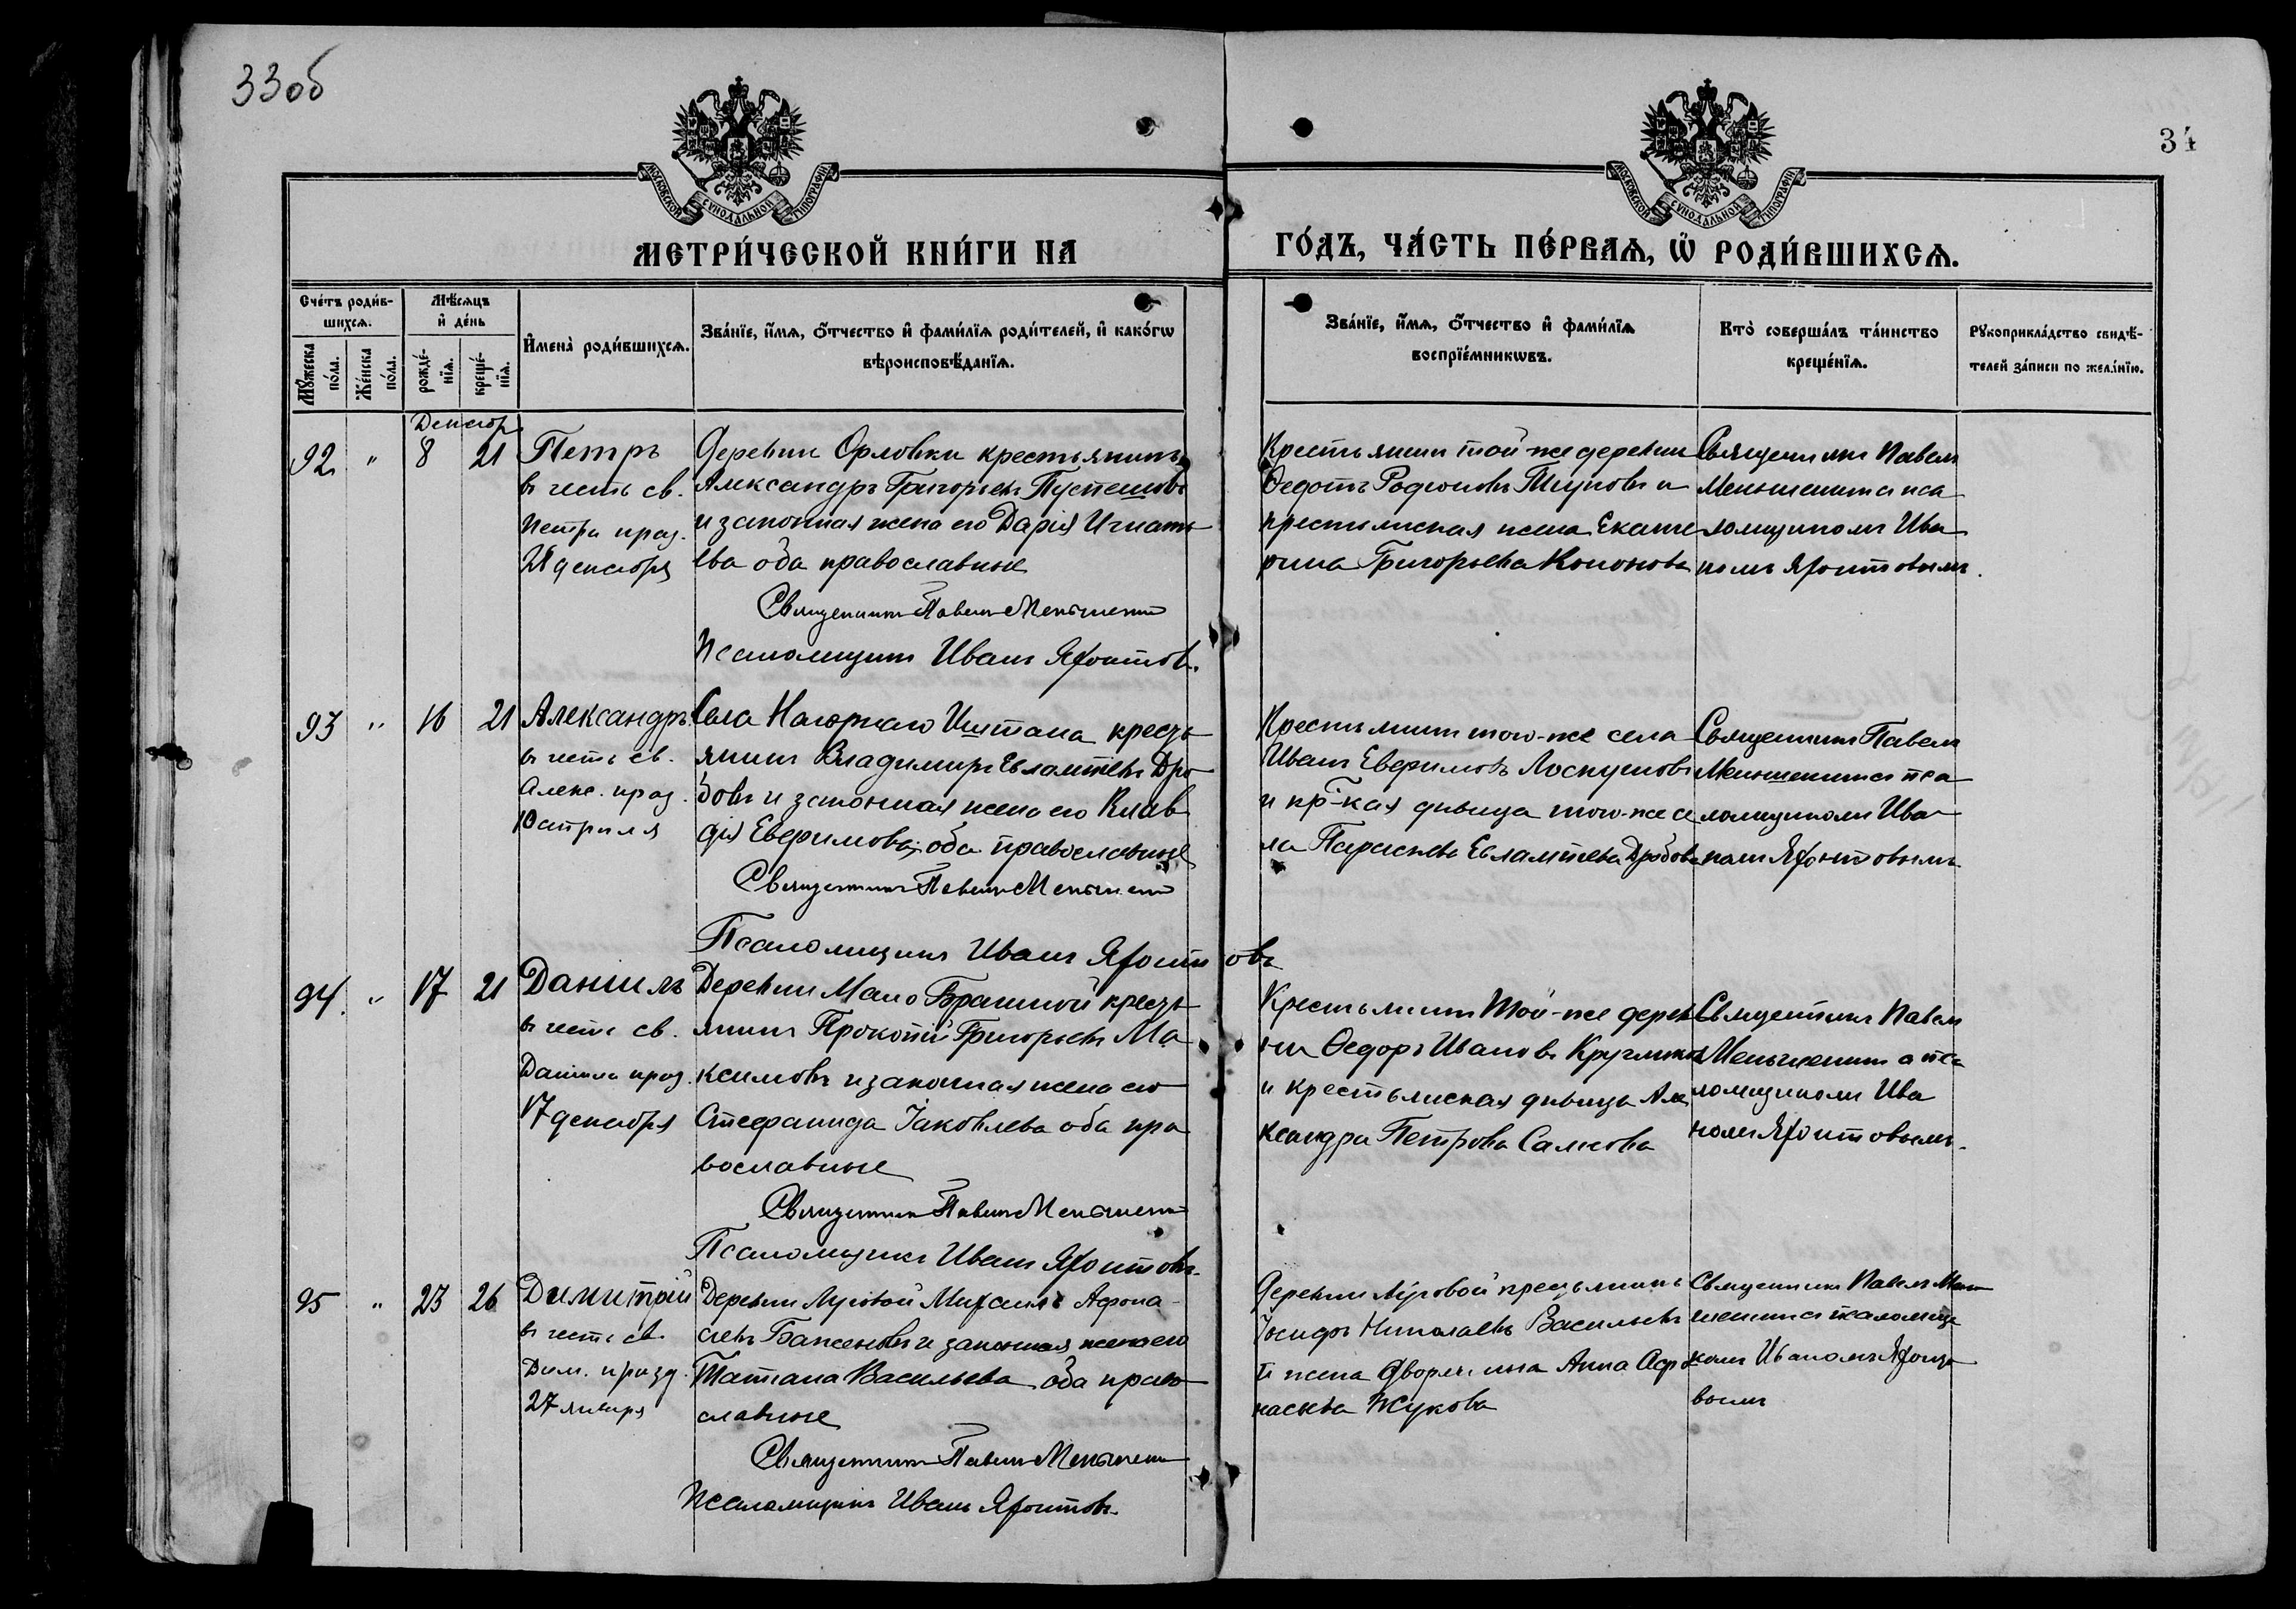 33об
34
МОСКОВСКОЙ СѴНОДАЛЬНОЙ ТИПОГРАФІИ
МОСКОВСКОЙ СѴНОДАЛЬНОЙ ТИПОГРАФІИ
МЕТРИ́ЧЕСКОЙ КНИ́ГИ НА
ГО́ДЪ, ЧА́СТЬ ПЕ́РВАѦ, Ѡ РОДИ́ВШИХСѦ.
Сче́тъ роди́в-
шихсѧ.
Мꙋ́жеска по́ла.
Же́нска по́ла.
Мѣ́сѧцъ
и҆ де́нь
рожде́-
нїѧ.
креще́-
нїѧ.
И҆мена̀ роди́вшихсѧ.
Зва́нїе, и҆́мѧ, ѻ҆́тчество и҆ фами́лїѧ роди́телей, и҆ како́гѡ
вѣроисповѣ́данїѧ.
Зва́нїе, и҆́мѧ, ѻ҆́тчество и҆ фами́лїѧ
воспрїе́мникѡвъ.
Кто̀ соверша́лъ та́инство
креще́нїѧ.
Рꙋкоприкла́дство свидѣ́-
телей за́писи по жела́нїю.
Декабр
92 " 8 21
Петръ
въ честь св.
Петра праз.
21 декабря
Деревни Орловки крестьянинъ
Александръ Григорьевъ Пустешовъ
и законная жена его Дарія Игнать
ева оба православные
Священникъ Павелъ Меньшенинъ
Псаломщикъ Иванъ Яфонтовъ.
Крестьянинъ той-же деревни
Ѳедотъ Родіоновъ и
крестьянская жена Екате
рина Григорьева Кононова
Священникъ Павелъ
Меньшенинъ съ пса
ломщикомъ Ива
номъ Яфонтовымъ.
93 " 16 21
Александръ
въ честь св.
Алекс. праз.
10 апрѣля
Села Нагорнаго Иштана кресть
янинъ Владимиръ Евлампіевъ Дро
бовъ и законная жена его Клав
дія Евфимова, оба православные
Священникъ Павелъ Меньшенинъ
Псаломщикъ Иванъ Яфонтовъ
Крестьянинъ того-же села
Иванъ Евфимовъ Лоскутовъ
и кр-кая дѣвица того-же се
ла Параскева Евлампіева Дробова
Священникъ Павелъ
Меньшенинъ съ пса
ломщикомъ Ива
номъ Яфонтовымъ
94. " 17 21
Даніилъ
въ честь св.
Даніила праз.
17 декабря
Деревни Мало Брагиной кресть
янинъ Прокопій Григорьевъ Ма
ксимовъ и законная жена его
Стефанида Іаковлева оба пра
вославные
Священникъ Павелъ Меньшенинъ
Псаломщикъ Иванъ Яфонтовъ.
Крестьянинъ той-же дерев
ни Ѳедоръ Ивановъ
и крестьянская дѣвица Але
ксандра Петрова Салкова
Священникъ Павелъ
Меньшенинъ с пса
ломщикомъ Ива
номъ Яфонтовымъ.
95 " 23 26
Димитрій
въ честь св.
Дим. празд.
27 января
Деревни Луговой Михаилъ Афона-
сіевъ Баженовъ и законная жена его
Татіана Васильева оба право
славные
Священникъ Павелъ Меньшенинъ
Псаломщикъ Иванъ Яфонтовъ.
Деревни Луговой крестьянинъ
Исидоръ Николаевъ Васильевъ
и жена дворянина Анна Афо
насьева Жукова
Священникъ Павелъ Мень
шенинъ съ псаломщи
комъ Иваномъ Яфонто
вымъ